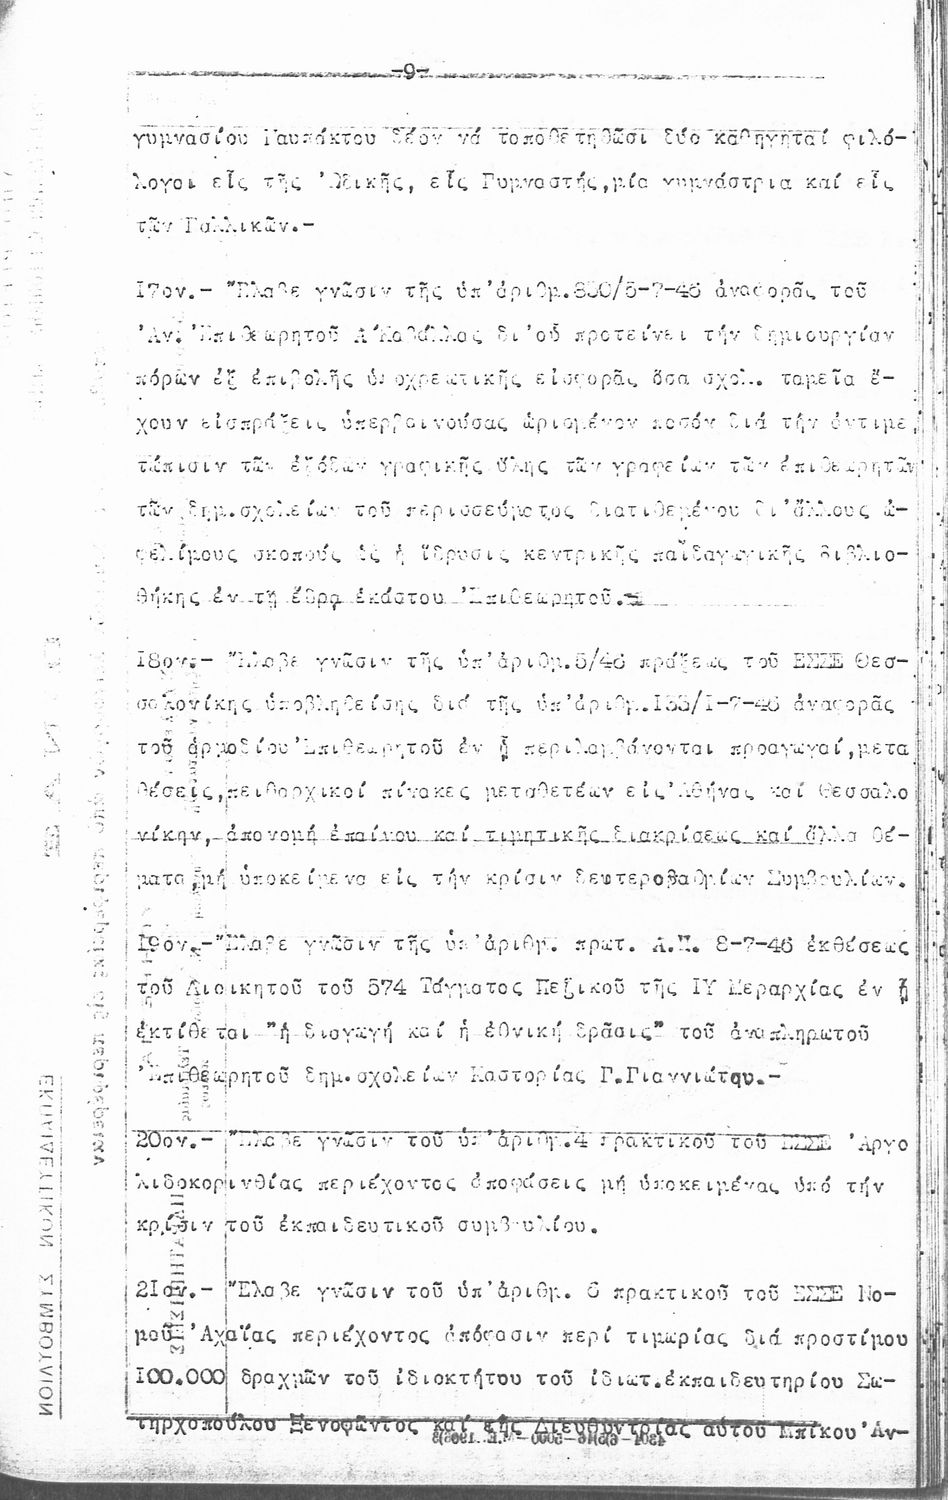 -9-
γυμνασίου Ναυπάκτου δέον νά τοποθετηθῶσι δύο καθηγηταί φιλό-
λογοι εἷς τῆς Ὠδικῆς, εἷς Γυμναστής,μία γυμνάστρια καί εἷς
τῶν Γαλλικῶν.-
17ον.- Ἔλαβε γνῶσιν τῆς ὑπ'ἀριθμ.850/5-7-46 ἀναφορᾶς τοῦ
Ἀν. Ἐπιθεωρητοῦ Α΄Καβάλλας δι'οὗ προτείνει τήν δημιουργίαν
πόρων ἐξ ἐπιβολῆς ὑποχρεωτικῆς εἰσφορᾶς ὅσα σχολ. ταμεῖα ἔ-
χουν εἰσπράξεις ὑπερβαινούσας ὡρισμένον ποσόν διά τήν ἀντιμε
τώπισιν τῶν ἐξόδων γραφικῆς ὕλης τῶν γραφείων τῶν ἐπιθεωρητῶν
τῶν δημ.σχολείων τοῦ περισσεύματος διατιθεμένου δι'ἄλλους ὠ-
φελίμους σκοπούς ὡς ἡ ἵδρυσις κεντρικῆς παιδαγωγικῆς βιβλιο-
θήκης ἐν τῇ ἕδρᾳ ἑκάστου Ἐπιθεωρητοῦ.-
18ον.- Ἔλαβε γνῶσιν τῆς ὑπ'ἀριθμ.5/46 πράξεως τοῦ ΕΣΣΕ Θεσ-
σαλονίκης ὑποβληθείσης διά τῆς ὑπ'ἀριθμ.133/1-7-46 ἀναφορᾶς
τοῦ ἁρμοδίου Ἐπιθεωρητοῦ ἐν ᾗ περιλαμβάνονται προαγωγαί,μετα
θέσεις,πειθαρχικοί πίνακες μεταθετέων εἰς Ἀθήνας καί Θεσσαλο
νίκην, ἀπονομή ἐπαίνου καί τιμητικῆς διακρίσεως καί ἄλλα θέ-
ματα μή ὑποκείμενα εἰς τήν κρίσιν δευτεροβαθμίων Συμβουλίων.
19ον.-Ἔλαβε γνῶσιν τῆς ὑπ'ἀριθμ. πρωτ. Α.Π. 8-7-46 ἐκθέσεως
τοῦ Διοικητοῦ τοῦ 574 Τάγματος Πεζικοῦ τῆς ΙΥ Μεραρχίας ἐν ᾗ
ἐκτίθεται "ἡ διαγωγή καί ἡ ἐθνική δρᾶσις" τοῦ ἀναπληρωτοῦ
Ἐπιθεωρητοῦ δημ.σχολείων Καστορίας Γ.Γιαννιώτου.-
20ον.- Ἔλαβε γνῶσιν τοῦ ὑπ'ἀριθμ.4 πρακτικοῦ τοῦ ΕΣΣΕ Ἀργο
λιδοκορινθίας περιέχοντος ἀποφάσεις μή ὑποκειμένας ὑπό τήν
κρίσιν τοῦ ἐκπαιδευτικοῦ συμβουλίου.
21ον.- Ἔλαβε γνῶσιν τοῦ ὑπ'ἀριθμ. 6 πρακτικοῦ τοῦ ΕΣΣΕ Νο-
μοῦ Ἀχαΐας περιέχοντος ἀπόφασιν περί τιμωρίας διά προστίμου
100.000 δραχμῶν τοῦ ἰδιοκτήτου τοῦ ἰδιωτ.ἐκπαιδευτηρίου Σω-
τηρχοπούλου Ξενοφῶντος καί τῆς Διευθυντρίας αὐτοῦ Μπίκου Ἀν-
ΕΚΠΑΙΔΕΥΤΙΚΟΝ ΣΥΜΒΟΥΛΙΟΝ